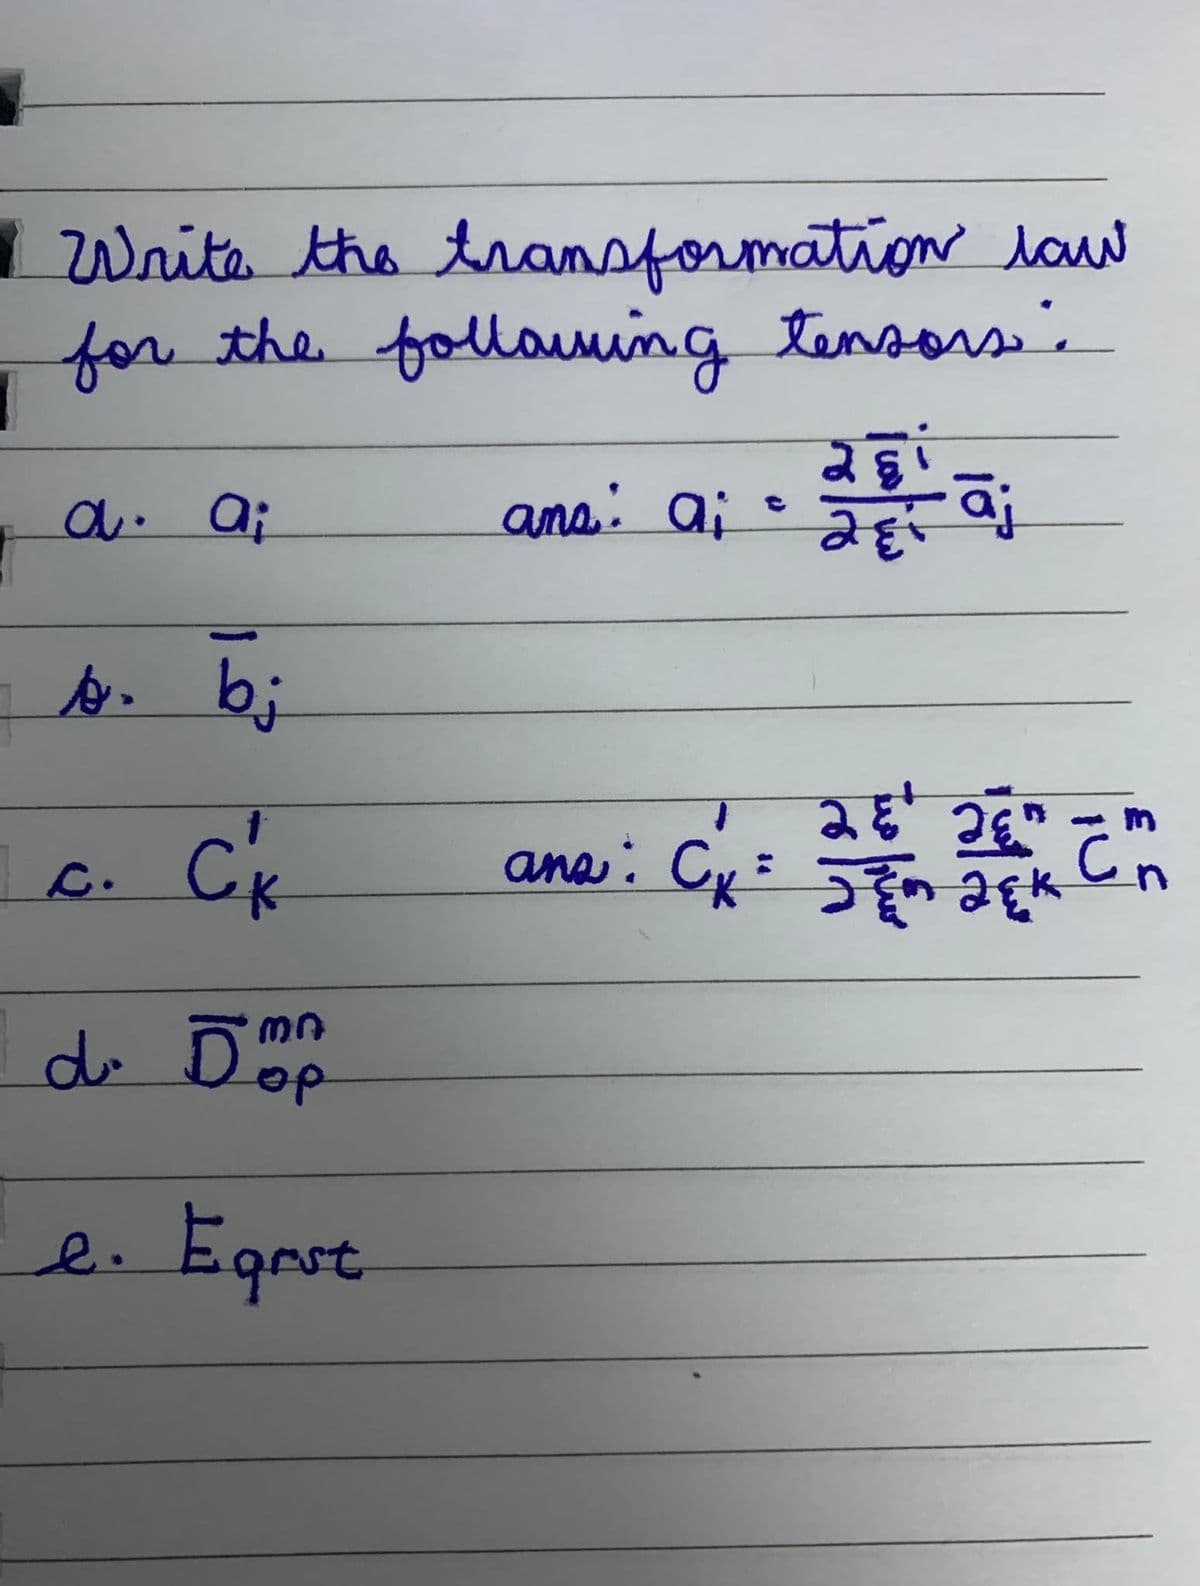 Write the transformation law
for the following tensors:
a. aᵢ ans: aᵢ = ∂ξ̄ⁱ/∂ξⁱ āⱼ
b. b̄ⱼ
c. C^l_K ans: C^l_K = ∂ξ^l/∂ξ̄^m ∂ξ̄^n/∂ξ^K C̄^m_n
d. D̄^mn_op
e. Eqrst